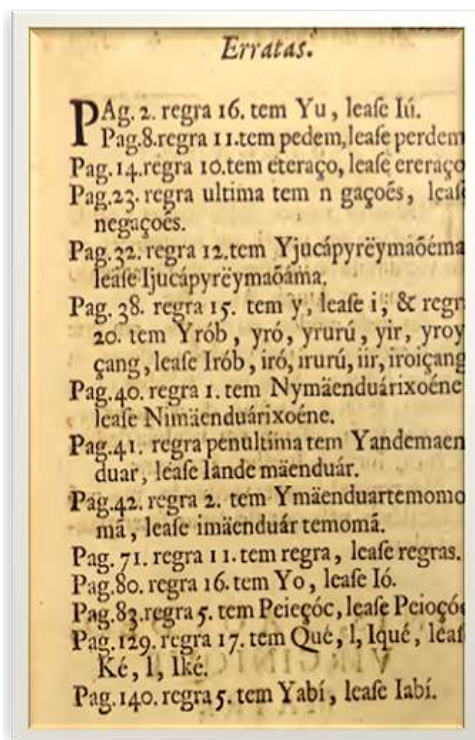 Erratas.
PAg. 2. regra 16. tem Yu, leaſe Iú.
Pag.8.regra 11.tem pedem,leaſe perdem
Pag.14.regra 10.tem eteraço, leaſe ereraço
Pag.23. regra ultima tem n gaçoẽs, leaſe
negaçoẽs.
Pag.32. regra 12.tem Yjucápyrëymaõéma
leaſe Ijucápyrëymaõáma.
Pag. 38. regra 15. tem y, leaſe i, & regr
20. tem Yrób, yró, yrurú, yir, yroy
çang, leaſe Irób, iró, irurú, iir, iroiçang
Pag.40. regra 1. tem Nymäenduárixoéne
leaſe Nimäenduárixoéne.
Pag.41. regra penultima tem Yandemaen
duar, leaſe Iande mäenduár.
Pag.42. regra 2. tem Ymäenduartemomo
mã, leaſe imäenduár temomã.
Pag. 71. regra 11. tem regra, leaſe regras.
Pag.80. regra 16. tem Yo, leaſe Ió.
Pag.83.regra 5. tem Peieçóc, leaſe Peioçóc
Pag.129. regra 17. tem Qué, l, Iqué, leaſ
Ké, l, Iké.
Pag.140. regra 5. tem Yabí, leaſe Iabí.